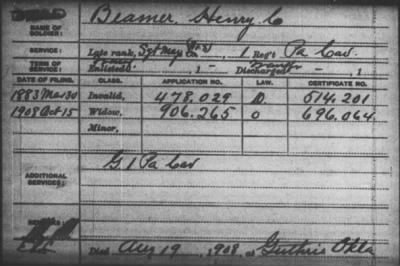 NAME OF SOLDIER: Beamer, Henry C
SERVICE: Late rank, Sgt Maj , 1 Reg't Pa Cav
TERM OF SERVICE: Enlisted , 1 Discharged , 1
DATE OF FILING. CLASS. APPLICATION NO. LAW. CERTIFICATE NO.
1883 Mar 30 Invalid, 478.029 D. 514.201
1908 Oct 15 Widow, 906.265 O 696.064
Minor,
ADDITIONAL SERVICES: G 1 Pa Cav
Died Aug 19, 1908, at Guthrie Okla